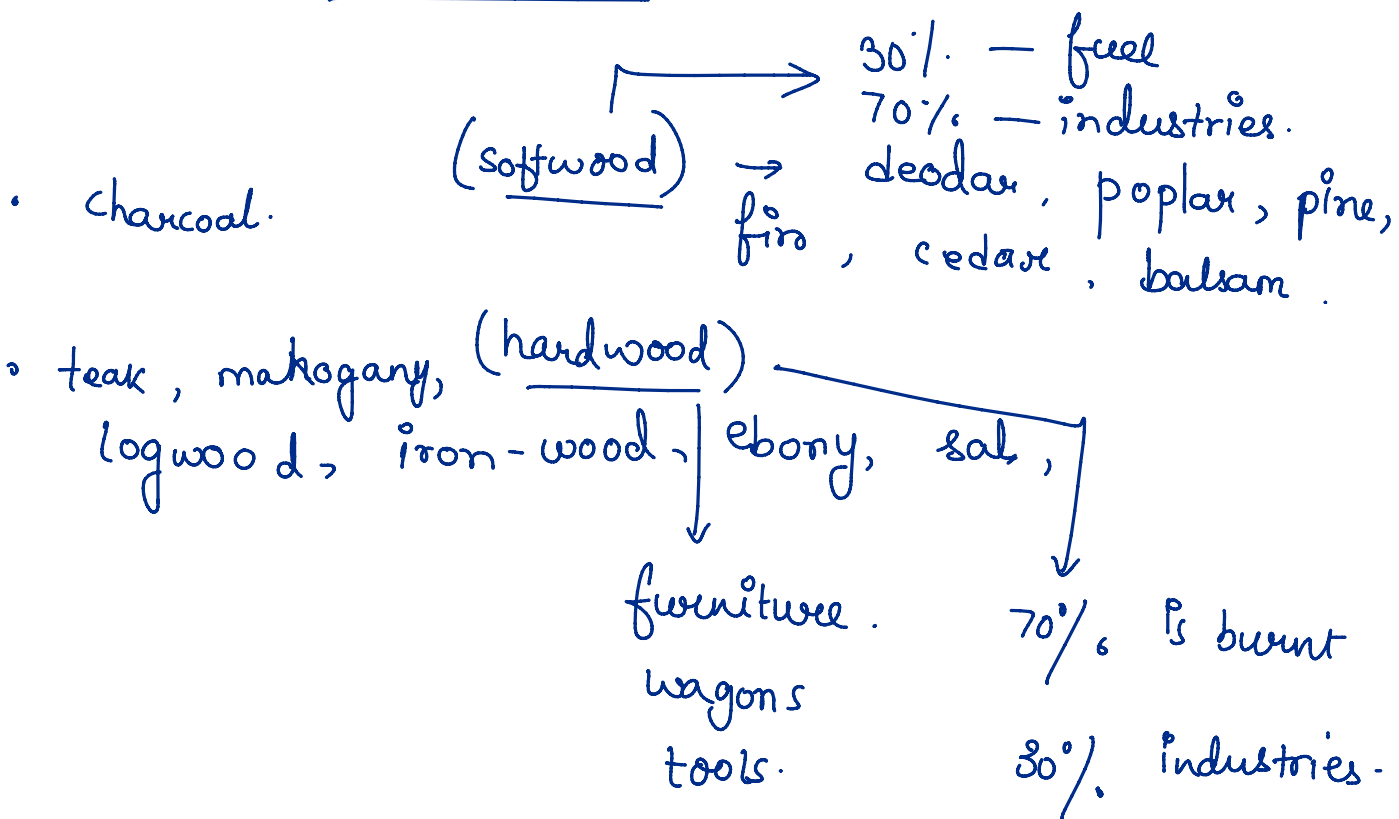 30% — fuel
70% — industries.
(softwood) → deodar, poplar, pine,
• charcoal.
fir, cedar, balsam.
(hardwood)
• teak, mahogany,
logwood, iron-wood, ebony, sal,
furniture.
wagons
tools.
70% is burnt
30% industries.